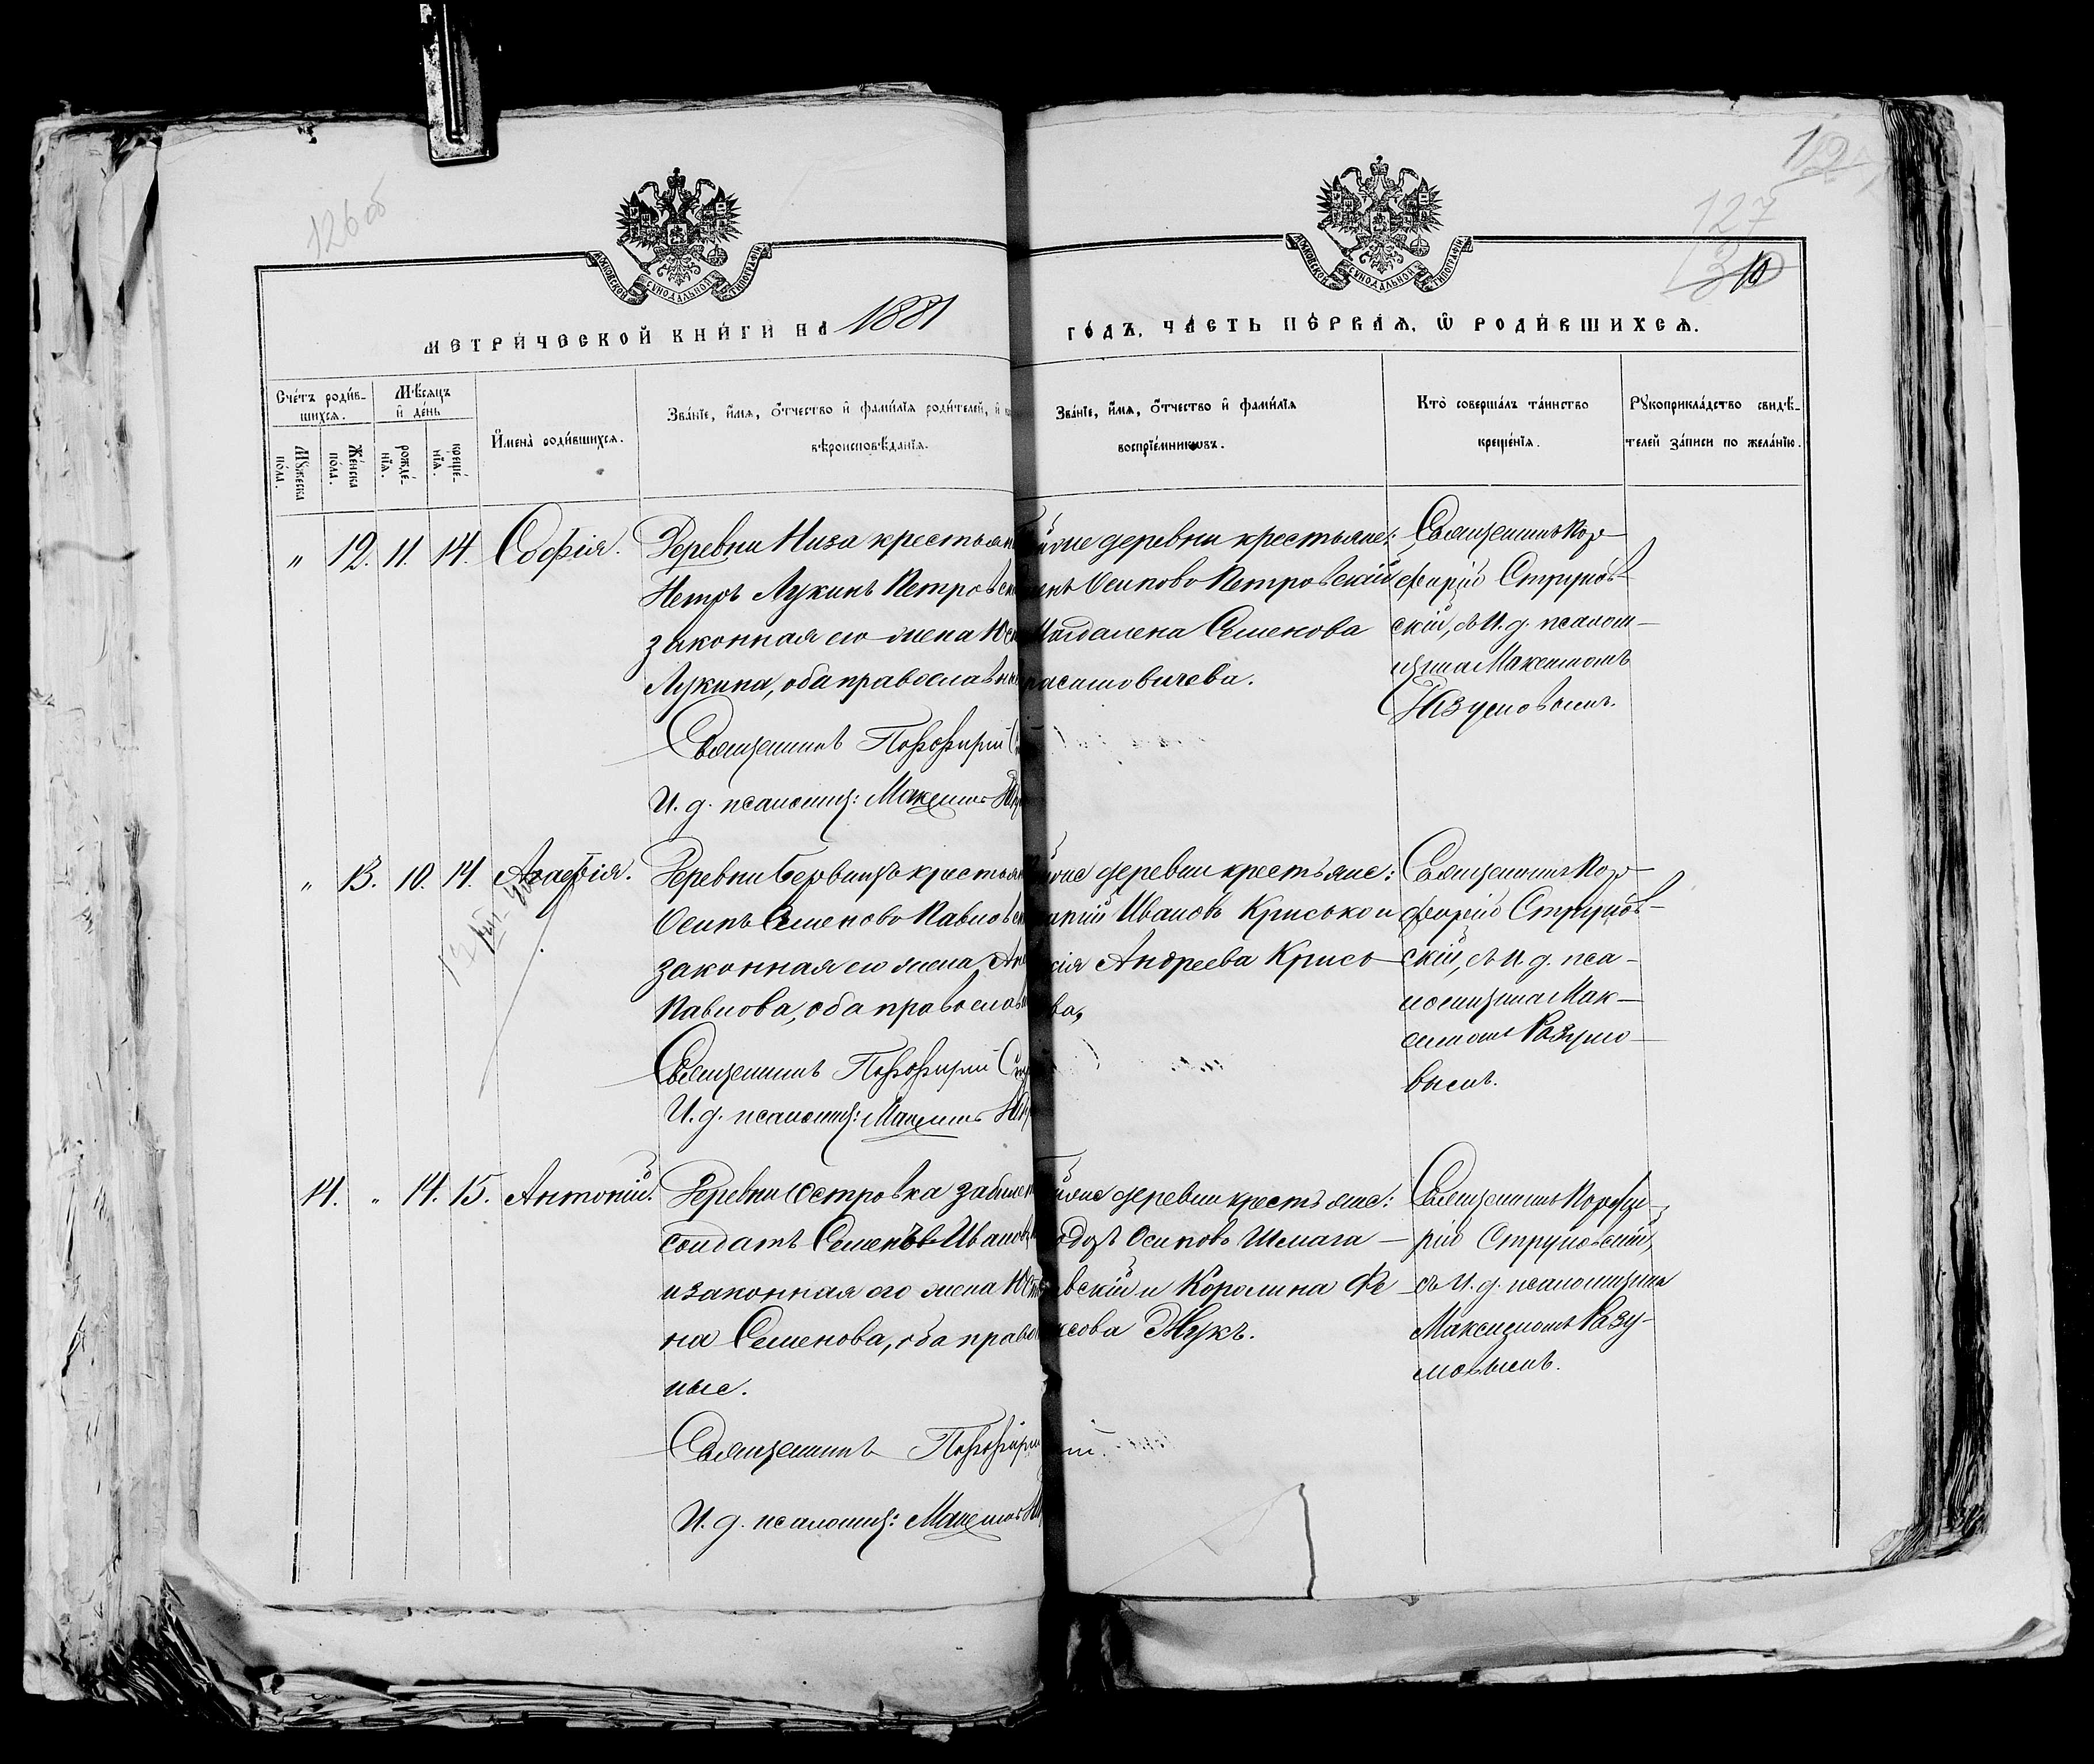 126об
127
10
МЕТРИЧЕСКОЙ КНИГИ НА 1881
ГОДЪ, ЧАСТЬ ПЕРВАЯ, Ѡ РОДИВШИХСЯ.
МОСКОВСКОЙ СѴНОДАЛЬНОЙ ТИПОГРАФІИ
МОСКОВСКОЙ СѴНОДАЛЬНОЙ ТИПОГРАФІИ
Счетъ родив-
шихся.
Мужеска пола.
Женска пола.
Мѣсяцъ
и день
рожде-
нія.
креще-
нія.
Имена родившихся.
Званіе, имя, отчество и фамилія родителей, и
вѣроисповѣданія.
Званіе, имя, отчество и фамилія
воспріемниковъ.
Кто совершалъ таинство
крещенія.
Рукоприкладство свидѣ-
телей записи по желанію.
" 12. 11. 14. Софія.
Деревни Низа крестьян
Петръ Лукинъ Петровск
законная его жена
Лукина, оба православн
Священникъ Порфирій
И. д. псаломщ: Максимъ
тойже деревни крестьяне:
Осиповъ Петровскій
Магдалена Семенова
расимовичева.
Священникъ Пор-
фирій Струков-
скій, съ И. д. псалом-
щика Максимомъ
Разумовымъ.
" 13. 10. 14. Агафія.
Деревни Бервищъ крестьян
Осипъ Семеновъ Павловск
законная его жена
Павлова, оба православн
Священникъ Порфирій
И. д. псаломщ: Максимъ
тойже деревни крестьяне:
Ивановъ Крисько и
Андреева Крись-
ва,
Священникъ Пор-
фирій Струков-
скій, съ И. д. пса-
ломщика Мак-
симомъ Разумо-
вымъ.
14. " 14. 15. Антоній.
Деревни Островка
солдатъ Семенъ Иванов
и законная его жена
на Семенова, оба право
ные.
Священникъ Порфирій
И. д. псаломщ: Максимъ
тойже деревни крестьяне:
Осиповъ Шмага-
вскій и Каролина Фе
ксова Жукъ.
Священникъ Порфи-
рій Струковскій,
съ И. д. псаломщика
Максимомъ Разу-
мовымъ.